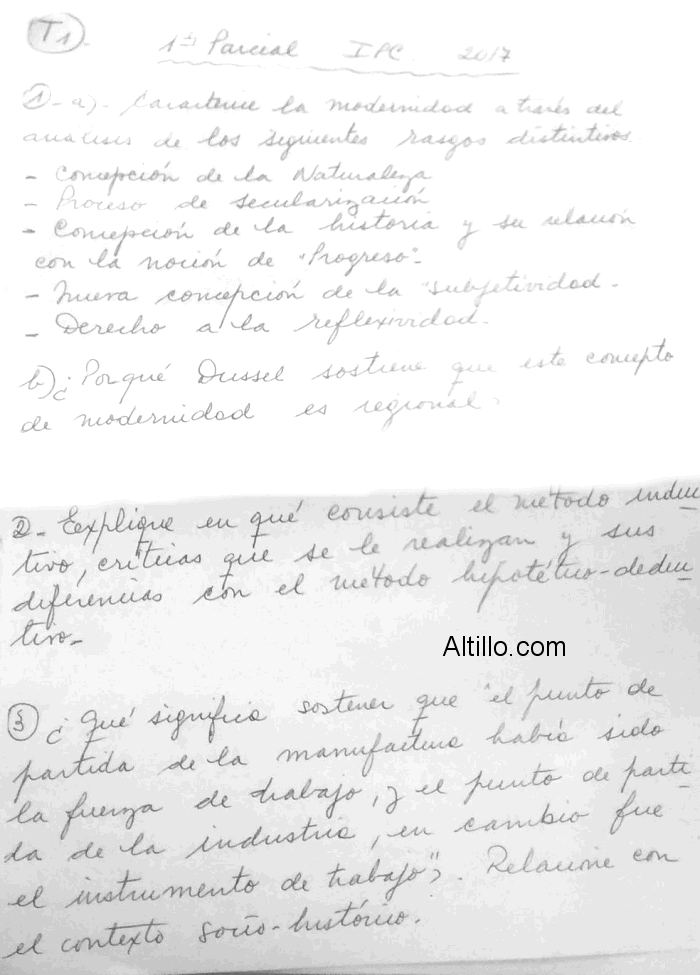 T1.
1er Parcial IPC 2017
1- a)- Caracterice la modernidad a través del
análisis de los siguientes rasgos distintivos.
- Concepción de la Naturaleza
- Proceso de secularización
- Concepción de la historia y su relación
con la noción de "Progreso"-
- Nueva concepción de la "subjetividad-
- Derecho a la reflexividad-
b) ¿Porqué Dussel sostiene que este concepto
de modernidad es regional?
2- Eexplique en qué consiste el método induc_
tivo, críticas que se le realizan y sus
diferencias con el método hipotético-deduc_
tivo-
Altillo.com
3 ¿Qué significa sostener que "el punto de
partida de la manufactura había sido
la fuerza de trabajo, y el punto de parti-
da de la industria, en cambio fue
el instrumento de trabajo"?. Relacione con
el contexto socio-histórico.